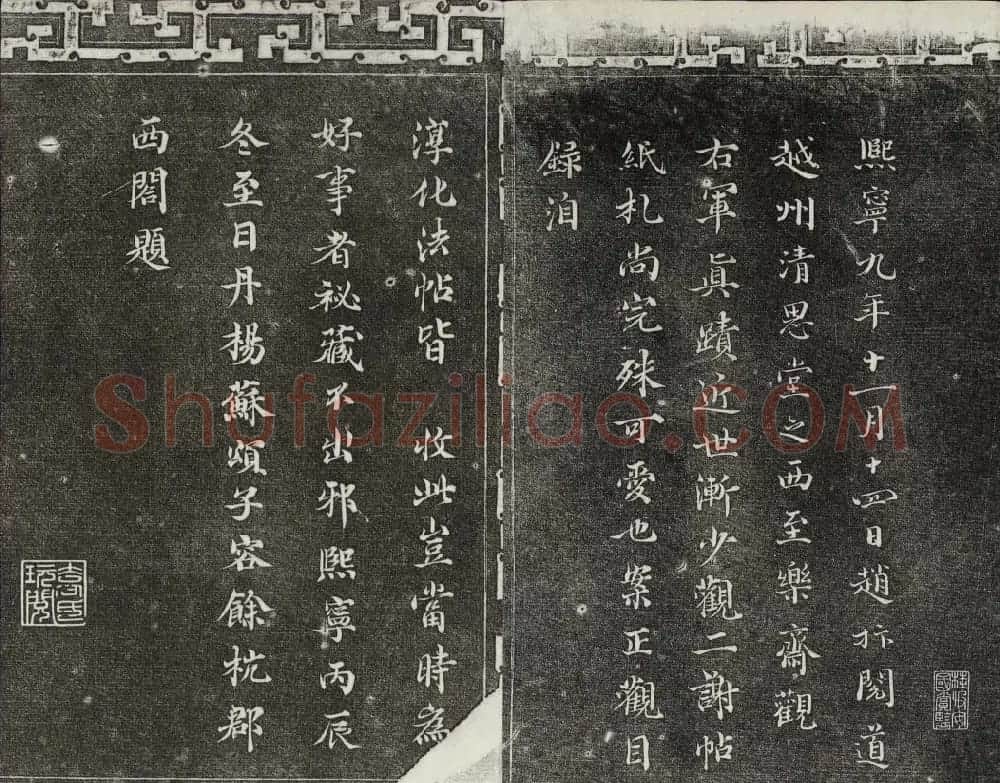 熙寧九年十一月十四日趙抃閱道
越州清思堂之西至樂齋觀
右軍真蹟近世漸少觀二謝帖
紙札尚完殊可愛也案正觀目
録洎
淳化法帖皆收此豈當時為
好事者祕藏不出邪熙寧丙辰
冬至日丹楊蘇頌子容餘杭郡
西閤題
袁氏玩閱
Shufaziliao.COM